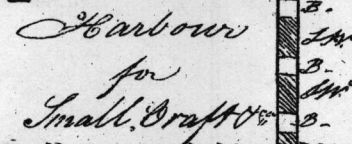 Harbour
for
Small Craft &ca
B.
B.
B.